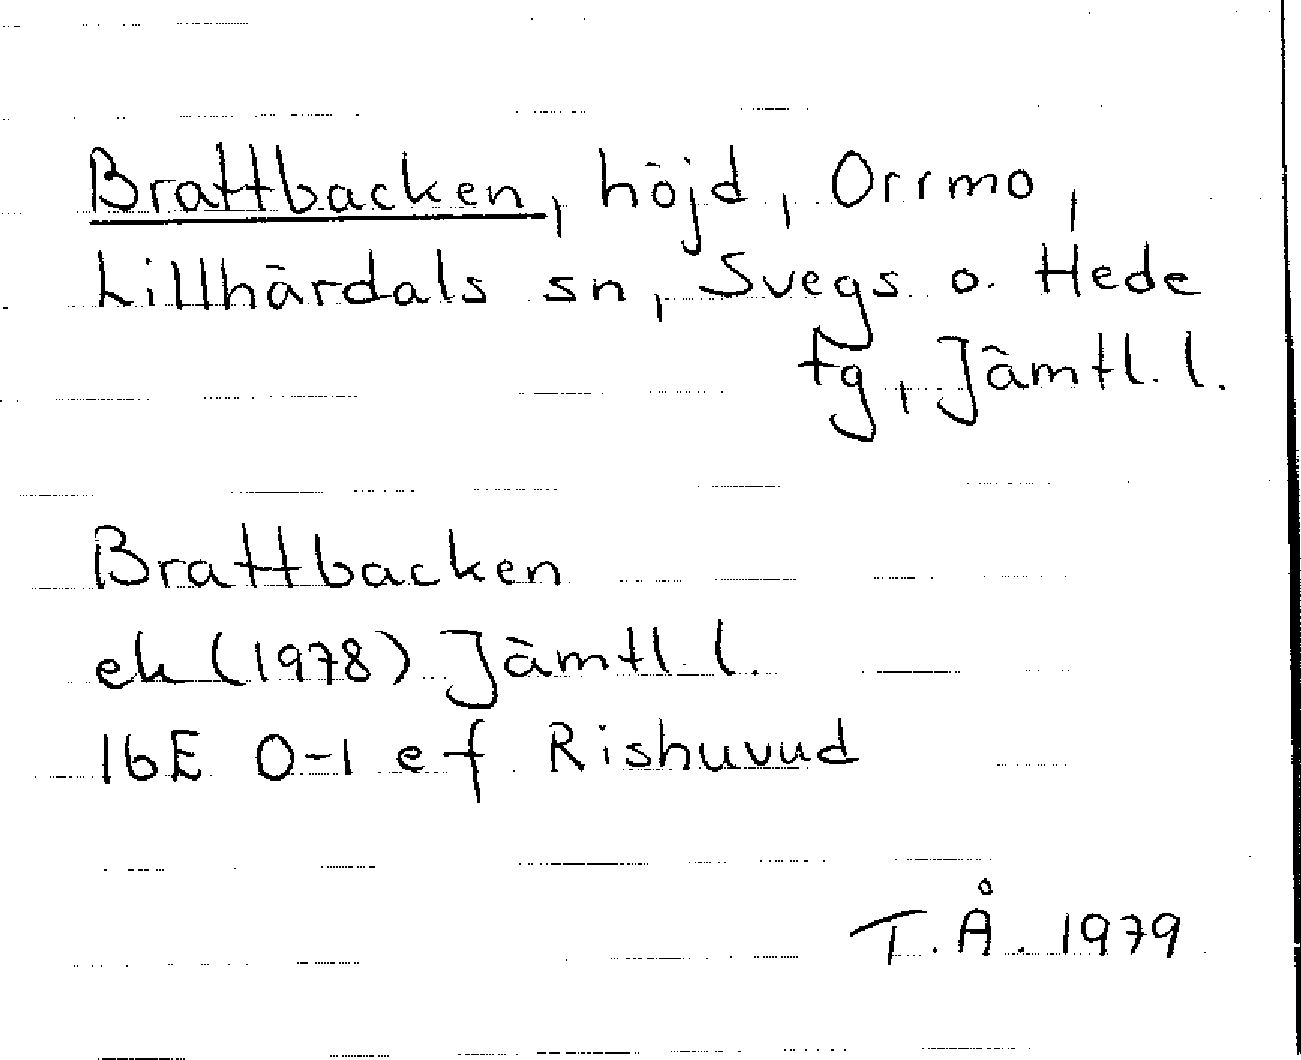 Brattbacken, höjd, Orrmo,
Lillhärdals sn, Svegs o. Hede
tg, Jämtl. l.
Brattbacken
ek (1978) Jämtl l.
16E 0-1 e f Rishuvud
T.Å. 1979